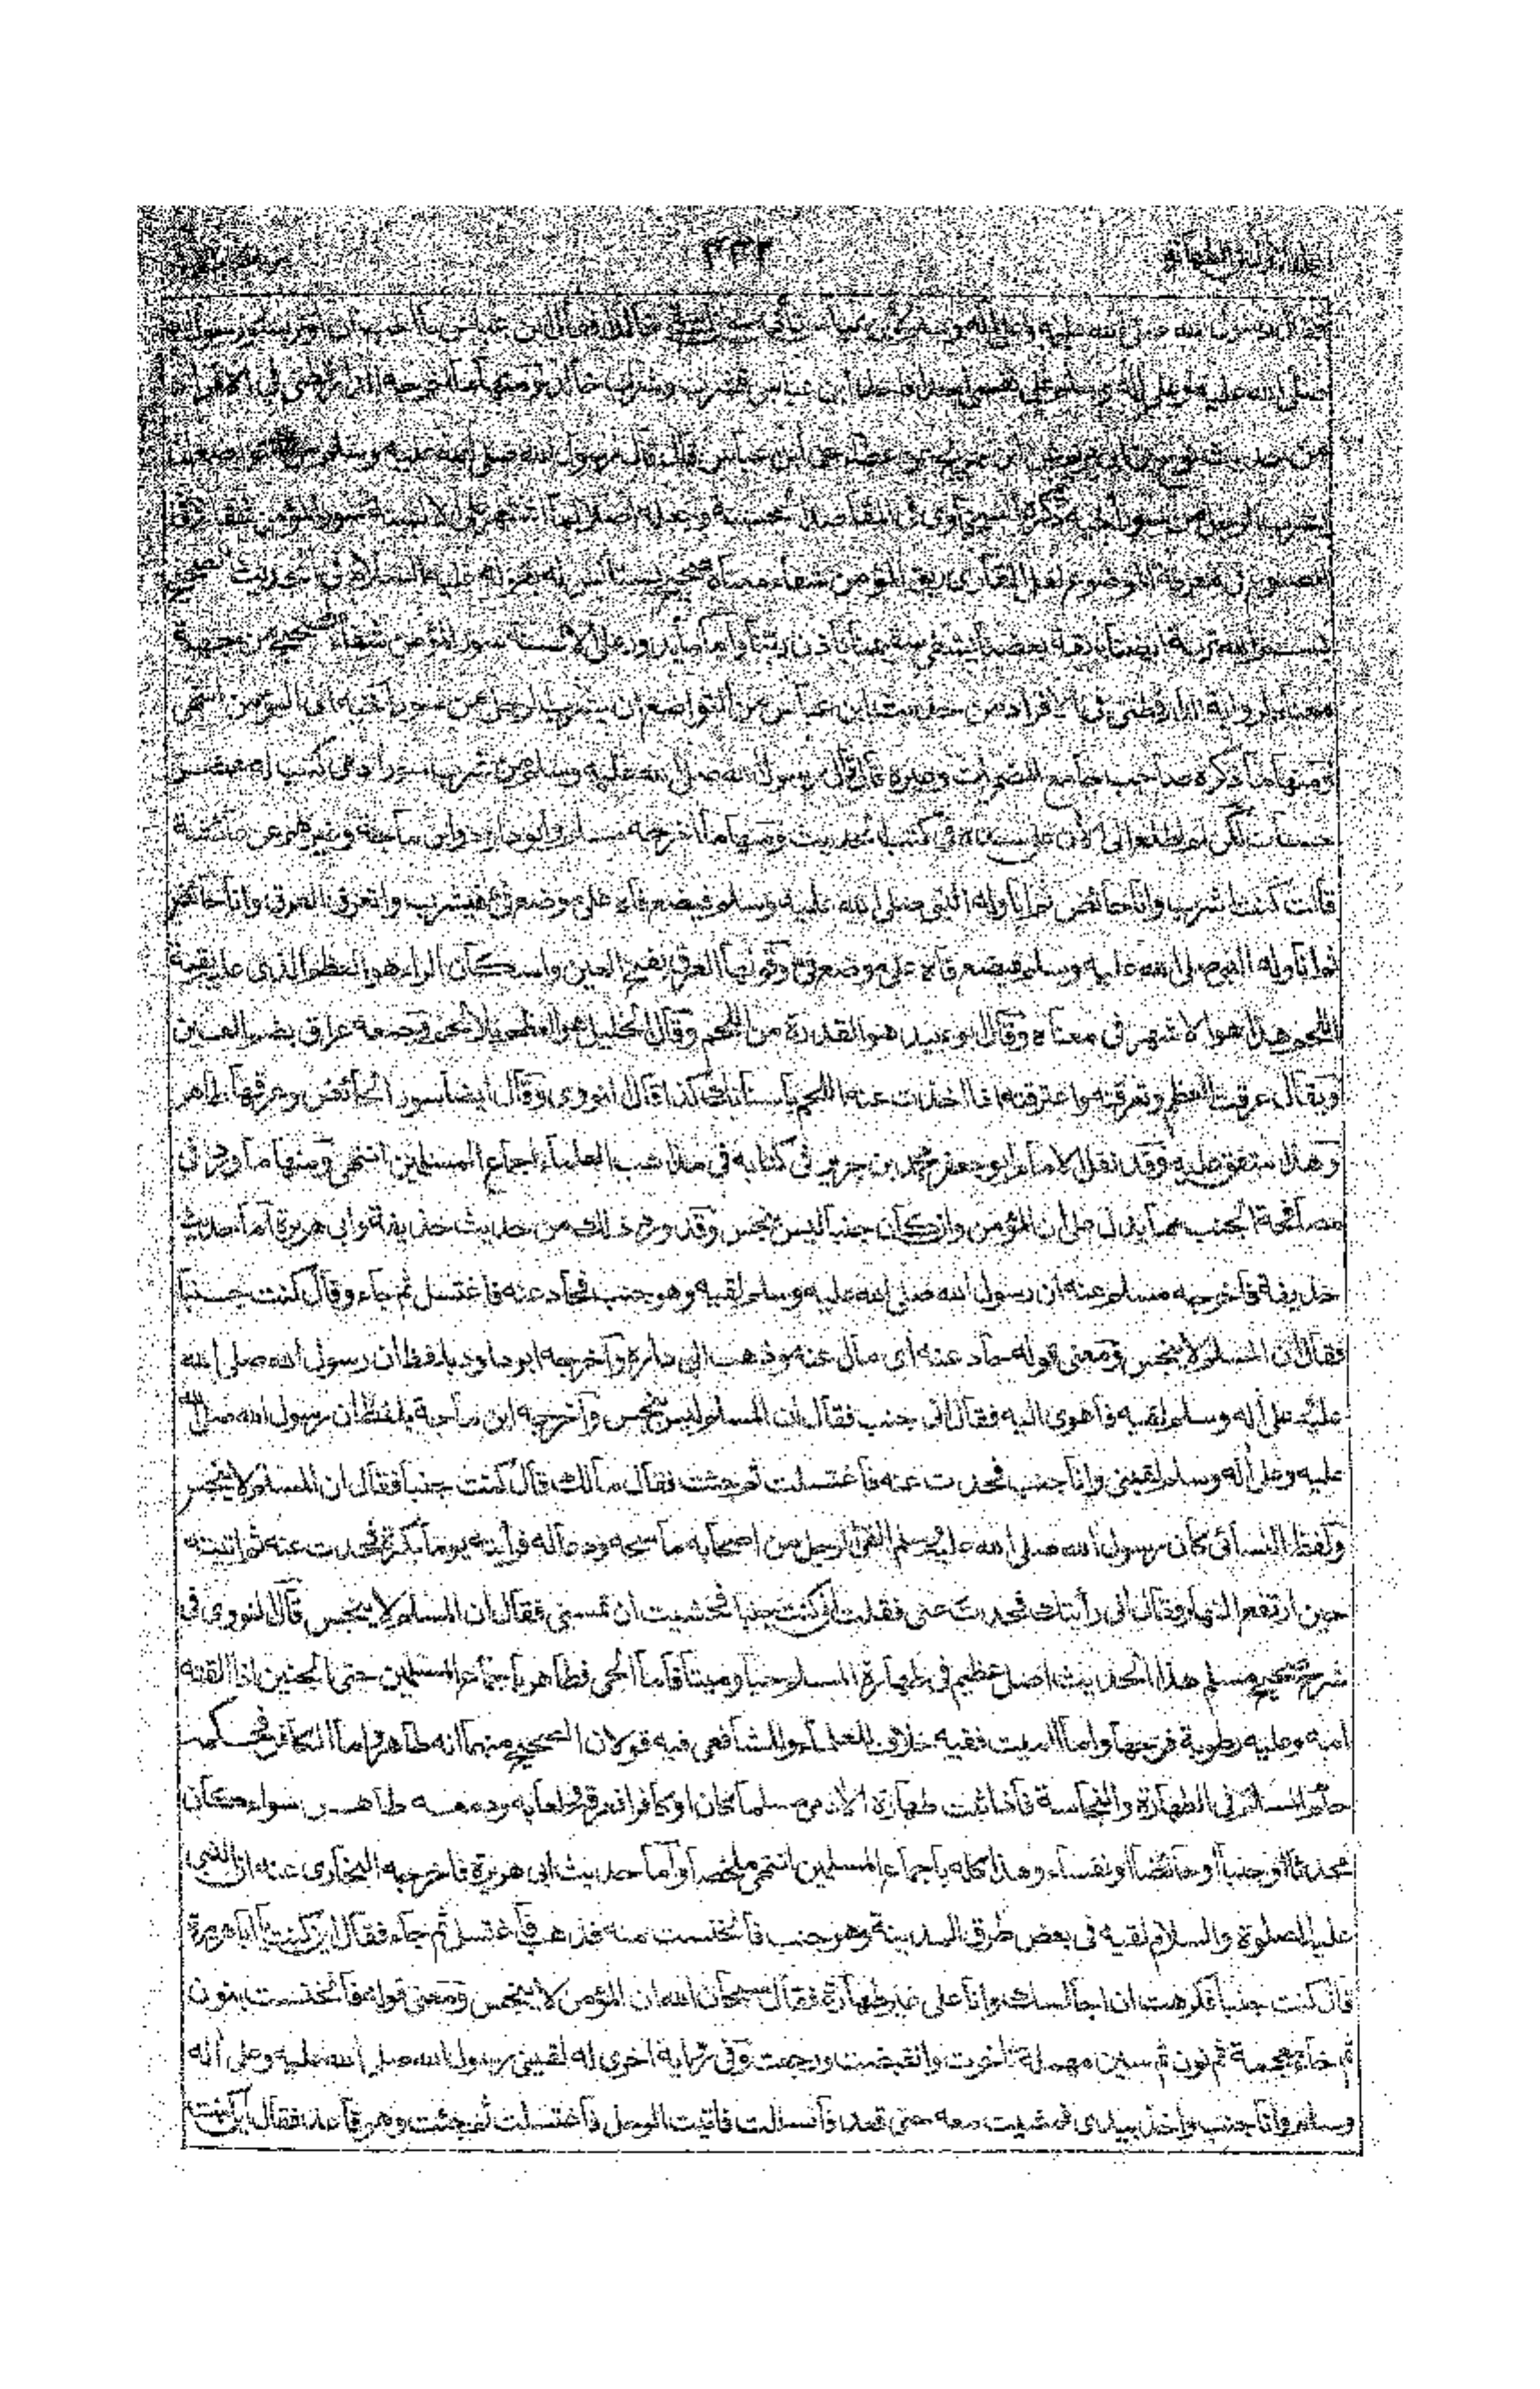 ۴۳۲
صلى الله عليه وعلى آله وسلم على نفسي احدا فاخذ ابن عباس فشرب وشرب خالد ومنها ما اخرجه الدارقطني في الافراد
من حديث نوح بن ابي مريم عن ابن جريج عن عطاء عن ابن عباس قال قال رسول الله صلى الله عليه وسلم من التواضع ان
يشرب الرجل من سور اخيه ذكره السخاوي في المقاصد الحسنة وجعله اصلا لما اشتهر على الالسنة سور المؤمن شفاء وفي
المصنوع في معرفة الموضوع لعلي القاري ريق المؤمن شفاء معناه صحيح يستأنس له بقوله عليه السلام في الحديث الصحيح
بسم الله تربة ارضنا بريقة بعضنا يشفي سقيمنا باذن ربنا واما ما يدور على الالسنة سور المؤمن شفاء فصحيح من جهة
معناه لرواية الدارقطني في الافراد من حديث ابن عباس من التواضع ان يشرب الرجل من سور اخيه اي المؤمن انتهى
ومنها ما ذكره صاحب جامع المضمرات وغيره قال قال رسول الله صلى الله عليه وسلم من شرب سور اخيه كتب له عشر
حسنات لكن لم اطلع الى الآن على سنده في كتب الحديث ومنها ما اخرجه مسلم وابو داود وابن ماجة وغيرهم عن عائشة
قالت كنت اشرب وانا حائض ثم اناوله النبي صلى الله عليه وسلم فيضع فاه على موضع في فيشرب واتعرق العرق وانا حائض
ثم اناوله النبي صلى الله عليه وسلم فيضع فاه على موضع في وقولها العرق بفتح العين واسكان الراء هو العظم الذي عليه بقية
اللحم هذا هو الاشهر في معناه وقال ابو عبيد هو القدرة من اللحم وقال الخليل هو العظم بلا لحم وجمعه عراق بضم العين
ويقال عرقت العظم وتعرقته واعترقته اذا اخذت عنه اللحم باسنانك كذا قال النووي وقال ايضا سور الحائض وعرقها طاهر
وهذا متفق عليه وقد نقل الامام ابو جعفر محمد بن جرير في كتابه في مذاهب العلماء اجماع المسلمين انتهى ومنها ما ورد في
مصافحة الجنب مما يدل على ان المؤمن وان كان جنبا ليس بنجس وقد ورد ذلك من حديث حذيفة وابي هريرة اما حديث
حذيفة فاخرجه مسلم عنه ان رسول الله صلى الله عليه وسلم لقيه وهو جنب فحاد عنه فاغتسل ثم جاء وقال كنت جنبا
فقال ان المسلم لا ينجس ومعنى قوله حاد عنه اي مال عنه وذهب الى داره واخرجه ابو داود بلفظ ان رسول الله صلى الله
عليه وعلى آله وسلم لقيه فاهوى اليه فقال اني جنب فقال ان المسلم ليس بنجس واخرجه ابن ماجة بلفظ ان رسول الله صلى الله
عليه وعلى آله وسلم لقيني وانا جنب فحدت عنه فاغتسلت ثم جئت فقال مالك قال كنت جنبا فقال ان المسلم لا ينجس
ولفظ النسائي كان رسول الله صلى الله عليه وسلم اذا لقي الرجل من اصحابه ماسحه ودعا له فرأيته يوما بكرة فحدت عنه ثم اتيته
حين ارتفع النهار فقال اني رأيتك فحدت عني فقلت اني كنت جنبا فخشيت ان تمسني فقال ان المسلم لا ينجس قال النووي في
شرح صحيح مسلم هذا الحديث اصل عظيم في طهارة المسلم حيا وميتا فاما الحي فطاهر باجماع المسلمين حتى الجنين اذا القته
امه وعليه رطوبة فرجها واما الميت ففيه خلاف للعلماء وللشافعي فيه قولان الصحيح منهما انه طاهر واما الكافر فحكمه
حكم المسلم في الطهارة والنجاسة فاذا ثبت طهارة الآدمي مسلما كان او كافرا فعرقه ولعابه ودمعه طاهر سواء كان
محدثا او جنبا او حائضا او نفساء وهذا كله باجماع المسلمين انتهى ملخصا واما حديث ابي هريرة فاخرجه البخاري عنه ان النبي
عليه الصلوة والسلام لقيه في بعض طرق المدينة وهو جنب فانخنست منه فذهب فاغتسل ثم جاء فقال اين كنت يا ابا هريرة
قال كنت جنبا فكرهت ان اجالسك وانا على غير طهارة فقال سبحان الله ان المؤمن لا ينجس ومعنى قوله فانخنست بنون
ثم خاء معجمة ثم نون ثم سين مهملة تاخرت وانقبضت ورجعت وفي رواية اخرى له لقيني رسول الله صلى الله عليه وعلى آله
وسلم وانا جنب واخذ بيدي فمشيت معه حتى قعد فانسللت فاتيت الرحل فاغتسلت ثم جئت وهو قاعد فقال اين كنت